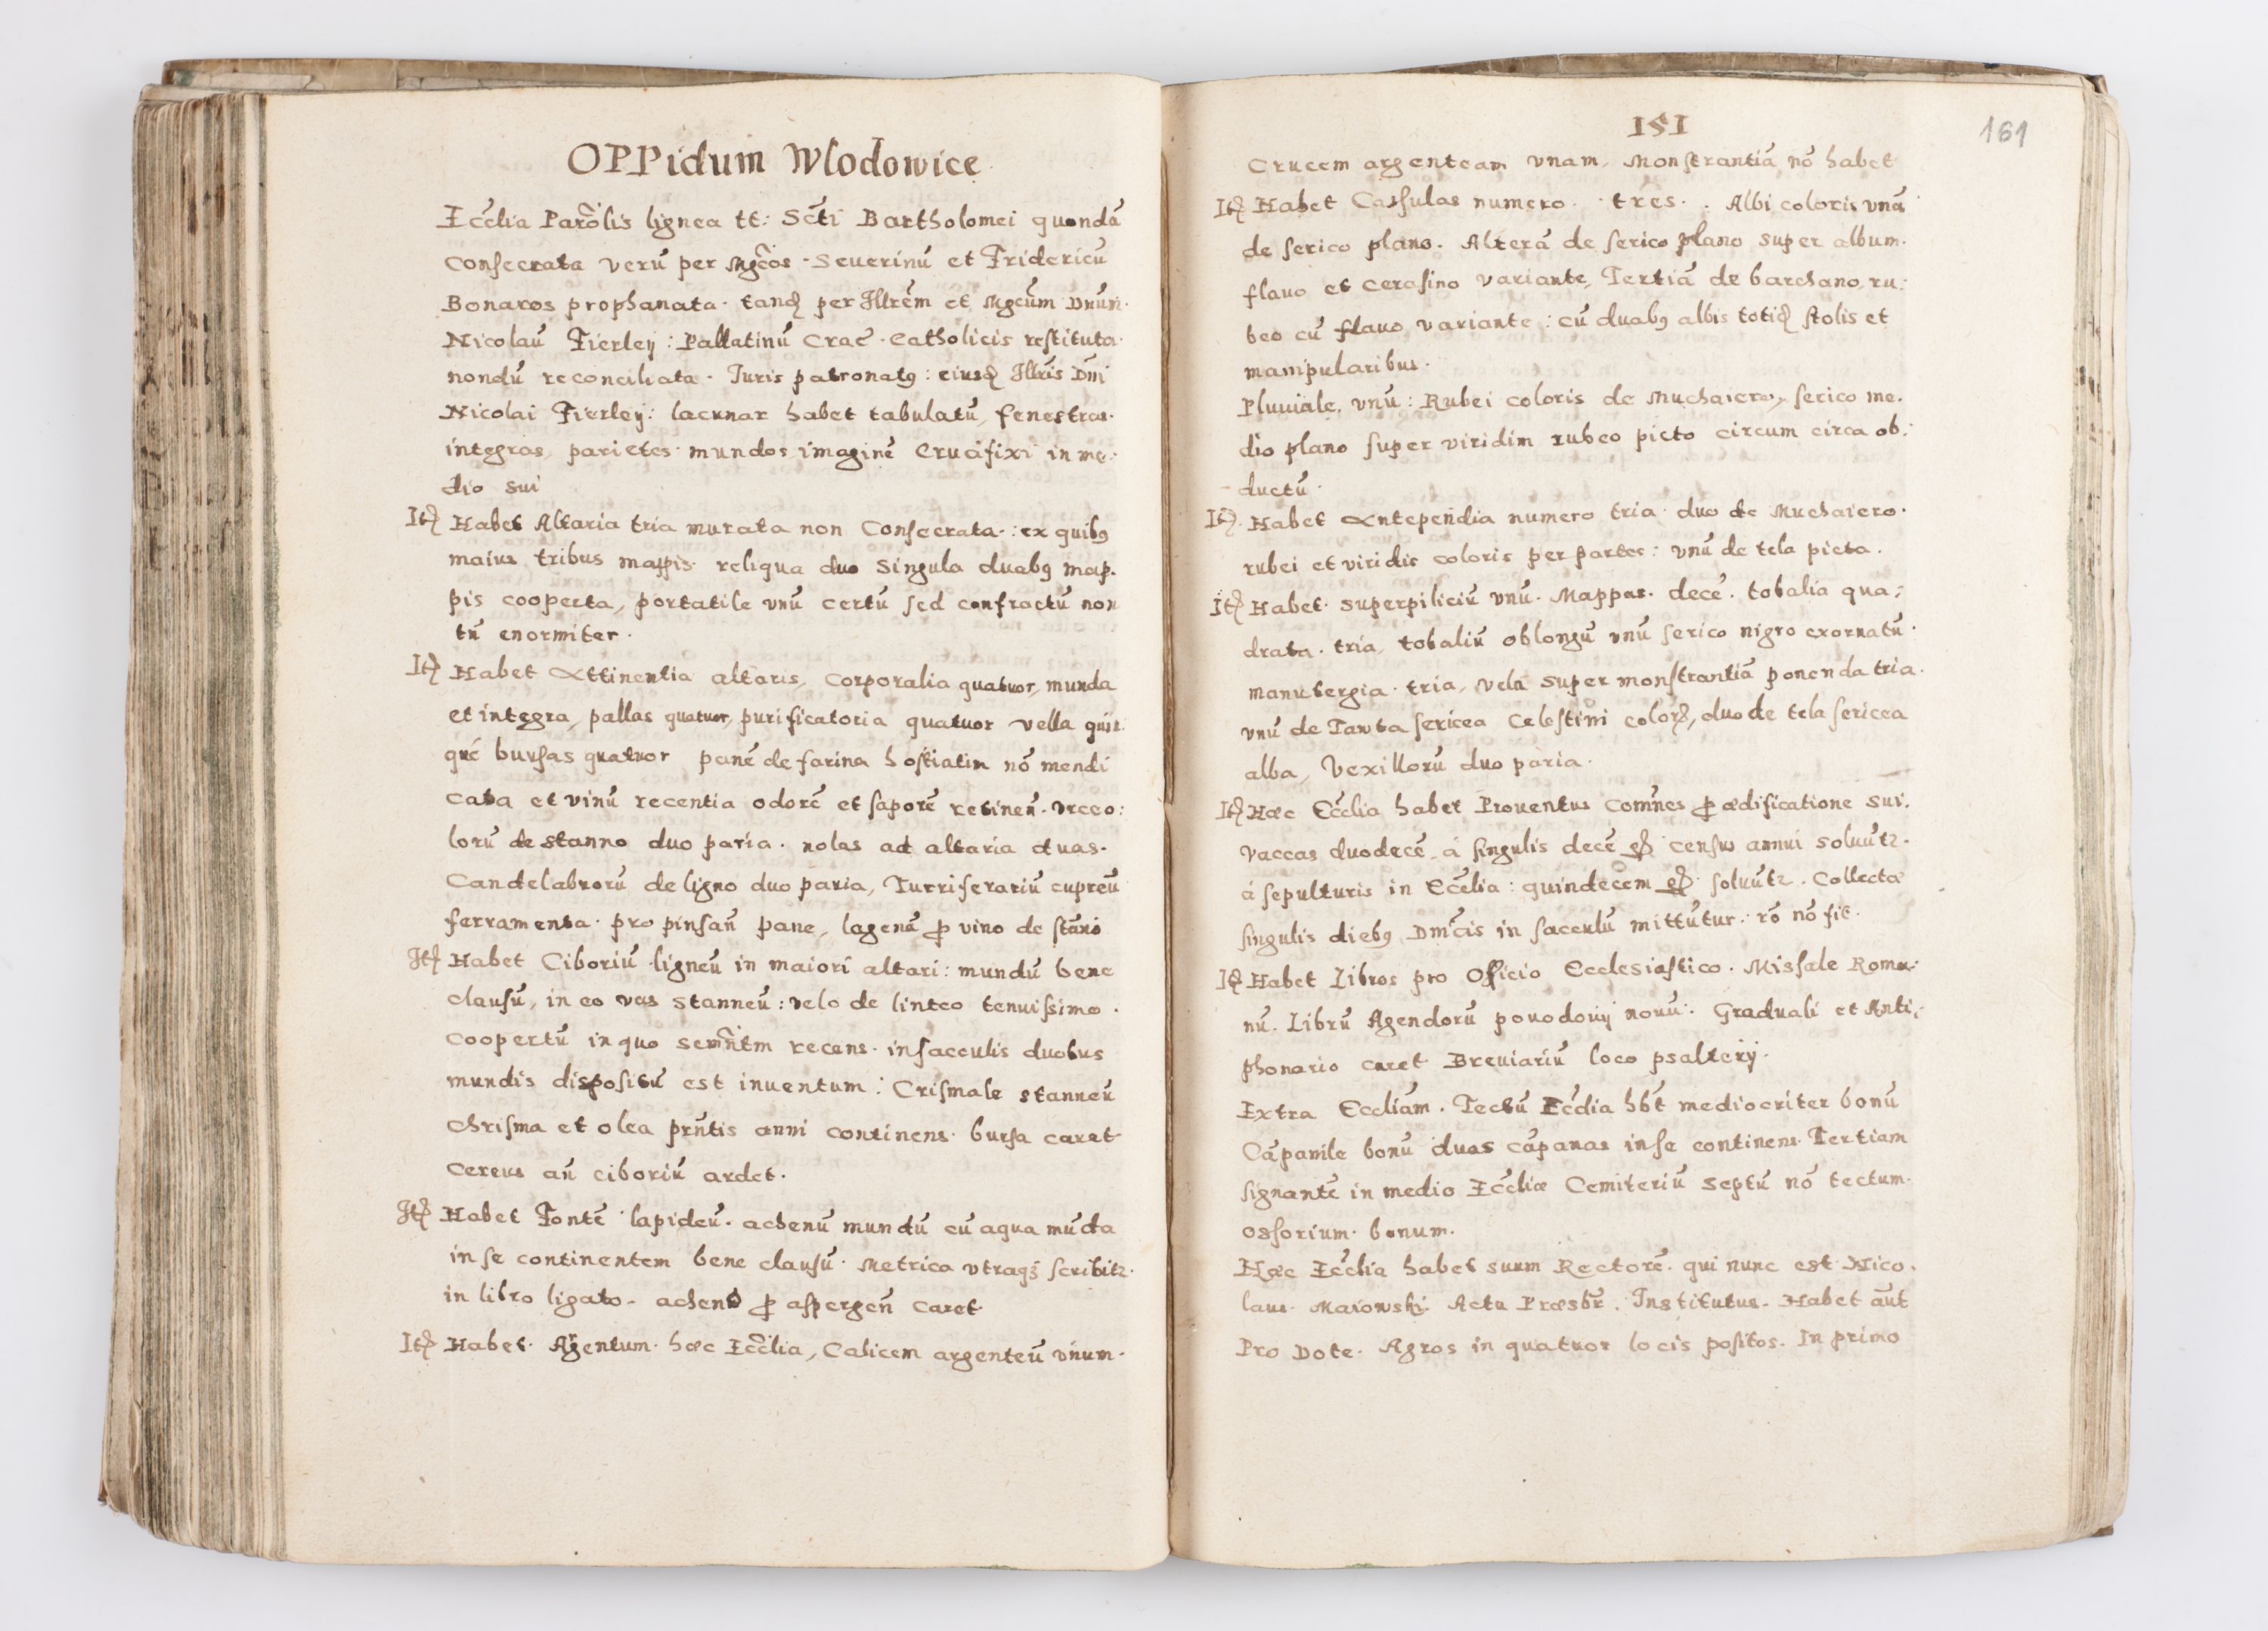 OPPidum Wlodowice
Ecc̃lia Paro͠lis lignea tt: Sc̃ti Bartholomei quondã
Consecrata verũ per Mgc̃os · Seuerinũ et Fridericũ
Bonaros prophanata · tandẽ per Illrẽm et Mgcũm Dnũm ·
Nicolaũ Fierley : Pallatinũ Crac̃ · Catholicis restituta ·
nondũ reconciliata · Juris patronatꝰ : eiusdẽ Illris Dñi
Nicolai Fierley : lacunar habet tabulatũ, fenestras ·
integras, parietes · mundos imaginẽ Crucifixi in me:
dio sui
Itẽ Habet Altaria tria murata non Consecrata · : ex quibꝰ
maius tribus mappis · reliqua duo singula duabꝰ map.
pis cooperta, portatile vnũ certũ sed confractũ non
tñ enormiter ·
Itẽ Habet Attinentia altaris, corporalia quatuor, munda
et integra, pallas quatuor, purificatoria quatuor vella quin.
quẽ bursas quatuor panẽ de farina hostiatim nõ mendi
cata et vinũ recentia odorẽ et saporẽ retineñ · Vrceo:
lorũ de stanno duo paria · nolas ad altaria duas ·
Candelabrorũ de ligno duo paria, Turriferariũ cupreũ
ferramenta · pro pinsañ pane, lagenã ꝓ vino de stãno
Itẽ Habet Ciboriũ ligneũ in maiori altari : mundũ bene
clausũ, in eo vas stanneũ : velo de linteo tenuissimo ·
coopertũ in quo semñtm recens · in sacculis duobus
mundis dispositũ est inuentum : Crismale stanneũ
Chrisma et olea prñtis anni continens · bursa caret
Cereus añ ciboriũ ardet ·
Itẽ Habet Fontẽ lapideũ · achenũ mundũ cũ aqua mũda
in se continentem bene clausũ · Metrica vtraqꝫ scribitꝛ ·
in libro ligato - achenõ ꝓ aspergeñ caret
Itẽ Habet · Argentum · hæc Ecc̃lia, Calicem argenteũ vnum ·
151
161
Crucem argenteam vnam, Monstrantiã nõ habet
Itẽ Habet Casfulas numero · tres · . Albi coloris vnã
de serico plano. Alterã de serico plano super album ·
flauo et cerasino variante, Tertiã de barchano, ru:
beo cũ flauo variante : cũ duabꝰ albis totidẽ stolis et
manipularibus ·
Pluuiale, vnũ : Rubei coloris de Muchaiero, serico me.
dio plano super viridim rubeo picto circum circa ob:
ductũ ·
Itẽ · Habet Antependia numero tria · duo de Muchaiero ·
rubei et viridis coloris per partes : vnũ de tela picta ·
Itẽ Habet · superpiliciũ vnũ · Mappas · decẽ · tobalia qua:
drata · tria, tobaliũ oblongũ vnũ serico nigro exornatũ ·
manutergia · tria, vela super monstrantiã ponenda tria ·
vnũ de Tawta sericea Celestini colorẽ, duo de tela sericea
alba, Vexillorũ duo paria ·
Itẽ Hæc Ecc̃lia habet Prouentus com̃nes ꝓ ædificatione sui.
vaccas duodecẽ, á singulis decẽ gẞ census annui soluũtꝛ ·
á sepulturis in Ecc̃lia : quindecem gẞ · soluũtꝛ . Collectæ
singulis diebꝰ Dmc̃is in sacculũ mittũtur · rõ nõ fit ·
Itẽ Habet Libros pro Officio Ecclesiastico · Missale Roma:
nũ. Librũ Agendorũ powodowy nouũ : Graduali et Anti:
phonario caret Breuiariũ loco psalterij ·
Extra Eccliãm · Tectũ Ecc̃lia hb̃t mediocriter bonũ
Cãpanile bonũ duas cãpanas in se continens · Tertiam
signantẽ in medio Ecc̃liæ Cemiteriũ septũ nõ tectum ·
ossorium · bonum.
Hæc Ecc̃lia habet suum Rectorẽ · qui nunc est Nico.
laus · Maiowski · Actu Præsbr̃ · Institutus - Habet aũt
Pro Dote · Agros in quatuor locis positos · In primo